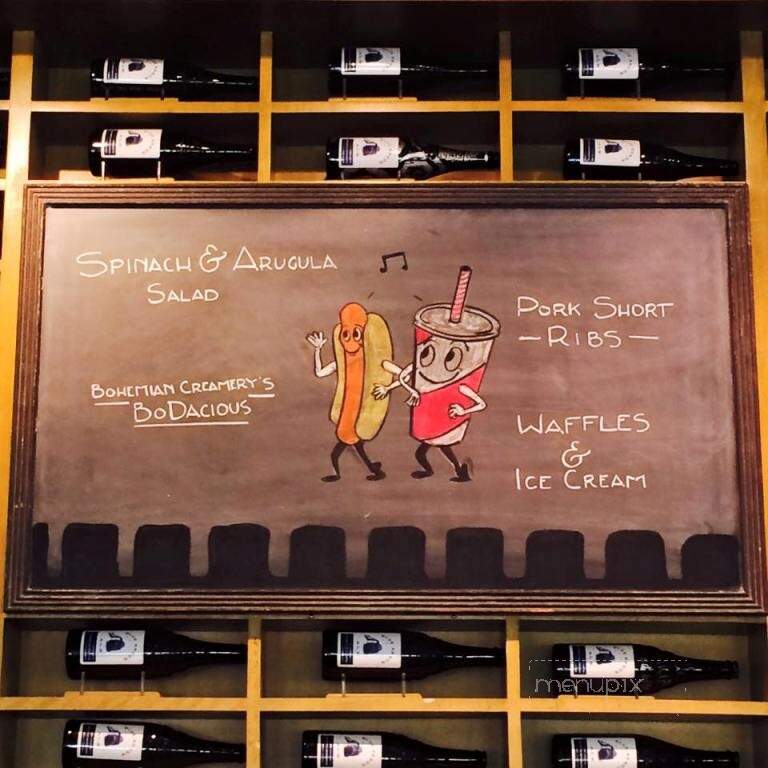 SPINACH & ARUGULA
SALAD
BOHEMIAN CREAMERY'S
BODACIOUS
PORK SHORT
-RIBS-
WAFFLES
&
ICE CREAM
menupix